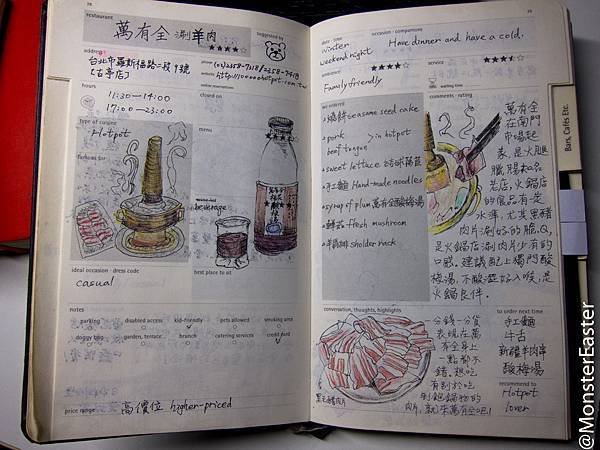 78
restaurant
萬有全 涮羊肉
suggested by
address
台北市羅斯福路二段1號
[古亭店]
phone (02)2358-7118/2358-7419
website
online reservations
hours
11:30—14:00
17:00—23:00
closed on
type of cuisine
Hotpot
famous for
menu
beverage
ideal occasion - dress code
casual
best place to sit
notes
parking
disabled access
kid-friendly
pets allowed
smoking area
doggy bag
garden, terrace
brunch
catering services
credit card
price range
高價位 higher-priced
79
date - time
Winter
weekend night
occasion - companions
Have dinner and have a cold.
ambience
Family friendly
service
waiting time
we ordered
燒餅 seasame seed cake
pork
beef tongue
> in hotpot
sweet lettuce
手工麵 Hand-made noodles
syrup of plum 萬有全酸梅湯
鮮菇-fresh mushroom
sholder rack
comments - rating
萬有全
在南門
市場起
家,是火腿
臘腸知名
老店,火鍋店
的食品有一定
水準,尤其黑豬
肉片涮好的脆、Q,
是火鍋店涮肉片少有的
口感,建議配上獨門酸
梅湯,不酸澀好入喉,是
火鍋良伴。
conversation, thoughts, highlights
一分錢一分貨
表現在萬
有全身上
一點都不
錯,想吃
有別於吃
到飽鍋物的
肉片,就來萬有全吧!
黑毛豬肉片
to order next time
手工麵
牛舌
新疆羊肉串
酸梅湯
recommend to
Hotpot
lover
Bars, Cafés Etc.
@MonsterEaster